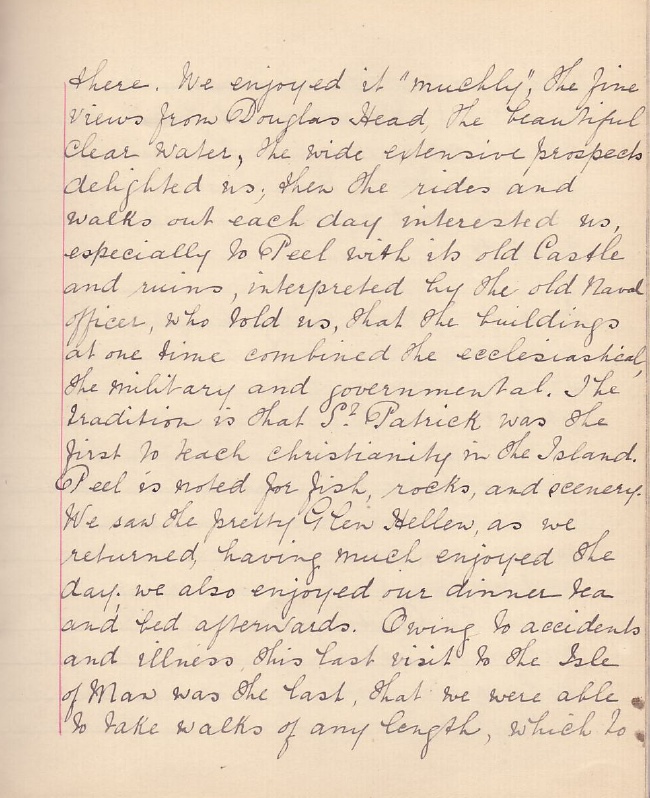 there. We enjoyed it "muchly", the fine
views from Douglas Head, the beautiful
clear water, the wide extensive prospects
delighted us; then the rides and
walks out each day interested us,
especially to Peel with its old Castle
and ruins, interpreted by the old Naval
officer, who told us, that the buildings
at one time combined the ecclesiastical,
the military and governmental. The
tradition is that St. Patrick was the
first to teach christianity in the Island.
Peel is noted for fish, rocks, and scenery.
We saw the pretty Glen Hellen, as we
returned, having much enjoyed the
day. we also enjoyed our dinner tea
and bed afterwards. Owing to accidents
and illness this last visit to the Isle
of Man was the last, that we were able
to take walks of any length, which to